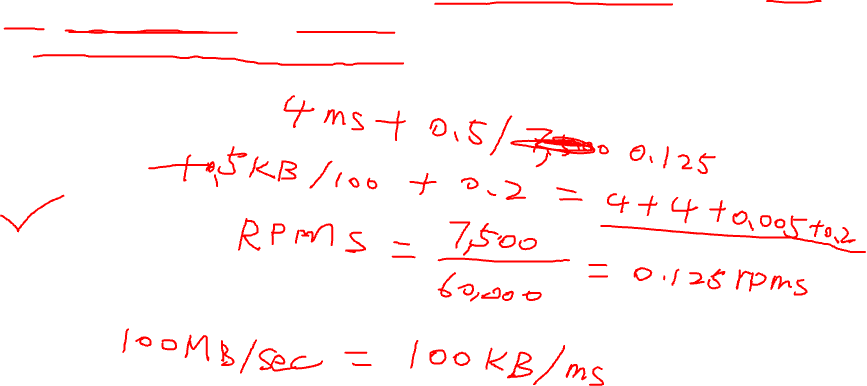 4 ms + 0.5/ 0.125
+0.5KB/100 + 0.2 = 4+4+0.005+0.2
RPMS = 7,500/60,000 = 0.125 rpms
100MB/sec = 100KB/ms